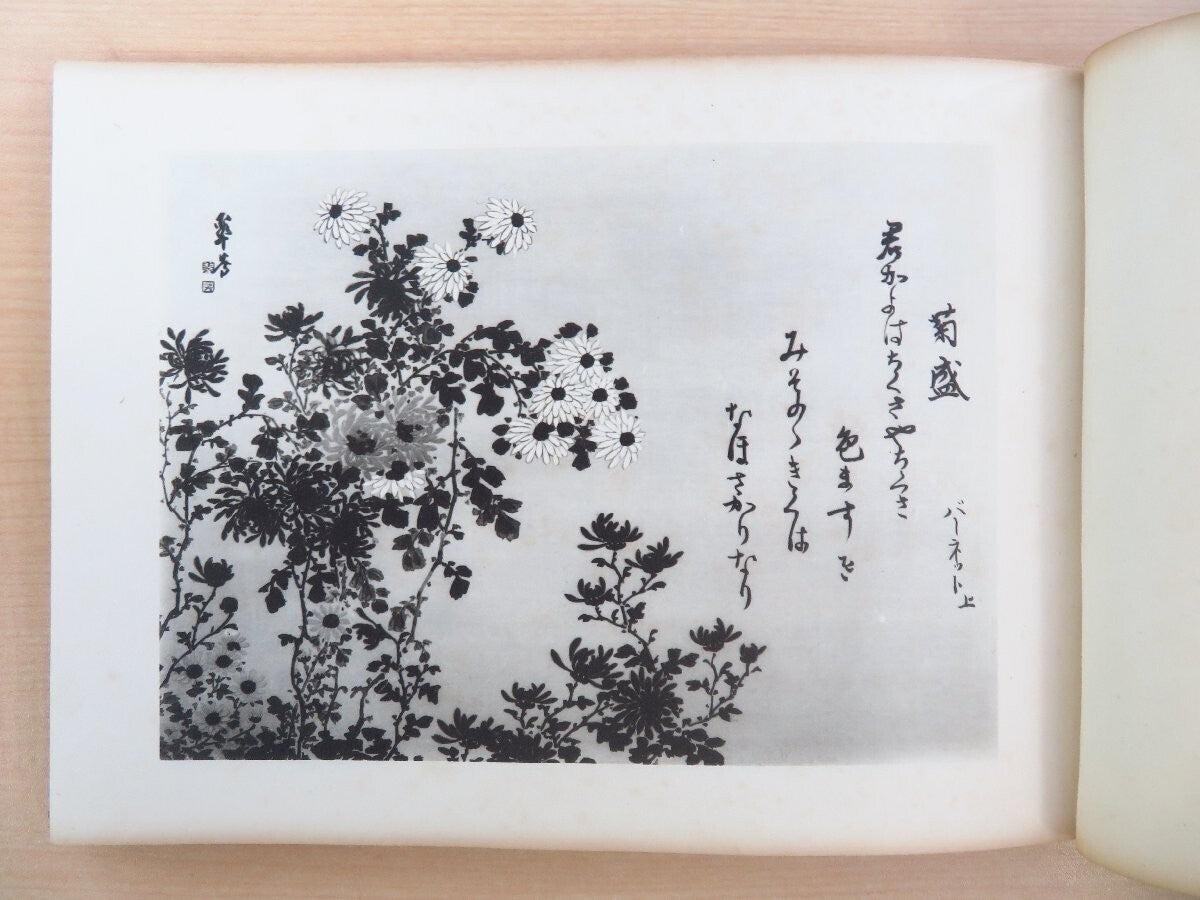 菊盛
バーネット上
君かよはちくさやちくさ
色ます
みそのゝきくは
なほさかりなり